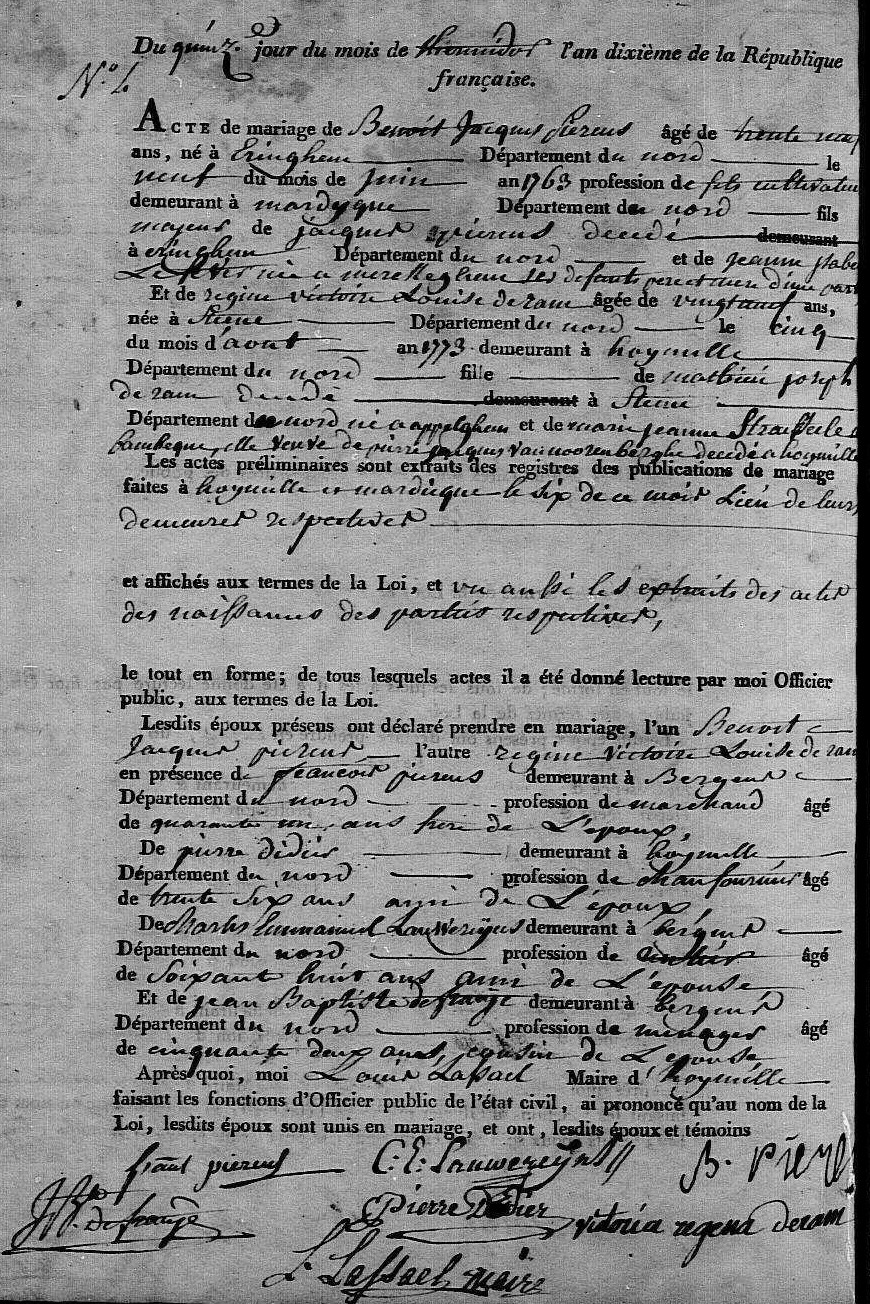 Du quinz. jour du mois de thermidor l'an dixième de la République
française.
N.o 4.
ACTE de mariage de Benoit Jacques pierens âgé de trente neuf
ans, né à Eringhem Département du nord le
neuf du mois de juin an 1763 profession de fils cultivateur
demeurant à mardyque Département du nord fils
majeur de jacques pierens decedé demeurant
à eringhem Département du nord et de jeanne
née a merckeghem ses defunts pere et mere d'une part
Et de regine victoire Louise de ram âgée de vingt neuf ans,
née à Steene Département du nord le cinq
du mois d'aout an 1773 demeurant à hoymille
Département du nord fille de mathieu joseph
de ram decedé demeurant à Steene
Département du nord né a et de marie jeanne
elle veuve de pierre jacques van noorenberghe decedé a hoymille
Les actes préliminaires sont extraits des registres des publications de mariage
faites à hoymille et mardicque le six de ce mois Lieu de leurs
demeures respectives
et affichés aux termes de la Loi, et vu aussi les extraits des actes
des naissances des parties respectives,
le tout en forme; de tous lesquels actes il a été donné lecture par moi Officier
public, aux termes de la Loi.
Lesdits époux présens ont déclaré prendre en mariage, l'un Benoit
Jacques pierens l'autre regine victoire Louise de ram
en présence de francois pierens demeurant à Bergues
Département du nord profession de marchand âgé
de quarante un ans frere de L'epoux,
De pierre didier demeurant à hoymille
Département du nord profession de chaufournier âgé
de trente Six ans ami de L'epoux,
De charles Emmanuel Lauwereyns demeurant à bergues
Département du nord profession de âgé
de Soixant huit ans ami de L'epouse
Et de jean Baptiste defrange demeurant à bergues
Département du nord profession de menager âgé
de cinquante deux ans, cousin de L'epouse
Après quoi, moi Louis Lassael Maire d'hoymille
faisant les fonctions d'Officier public de l'état civil, ai prononcé qu'au nom de la
Loi, lesdits époux sont unis en mariage, et ont, lesdits époux et témoins
pierens C: E: Lauwereyns B. piere
defrange Pierre Didier victoria regena deram
L. Lassael maire